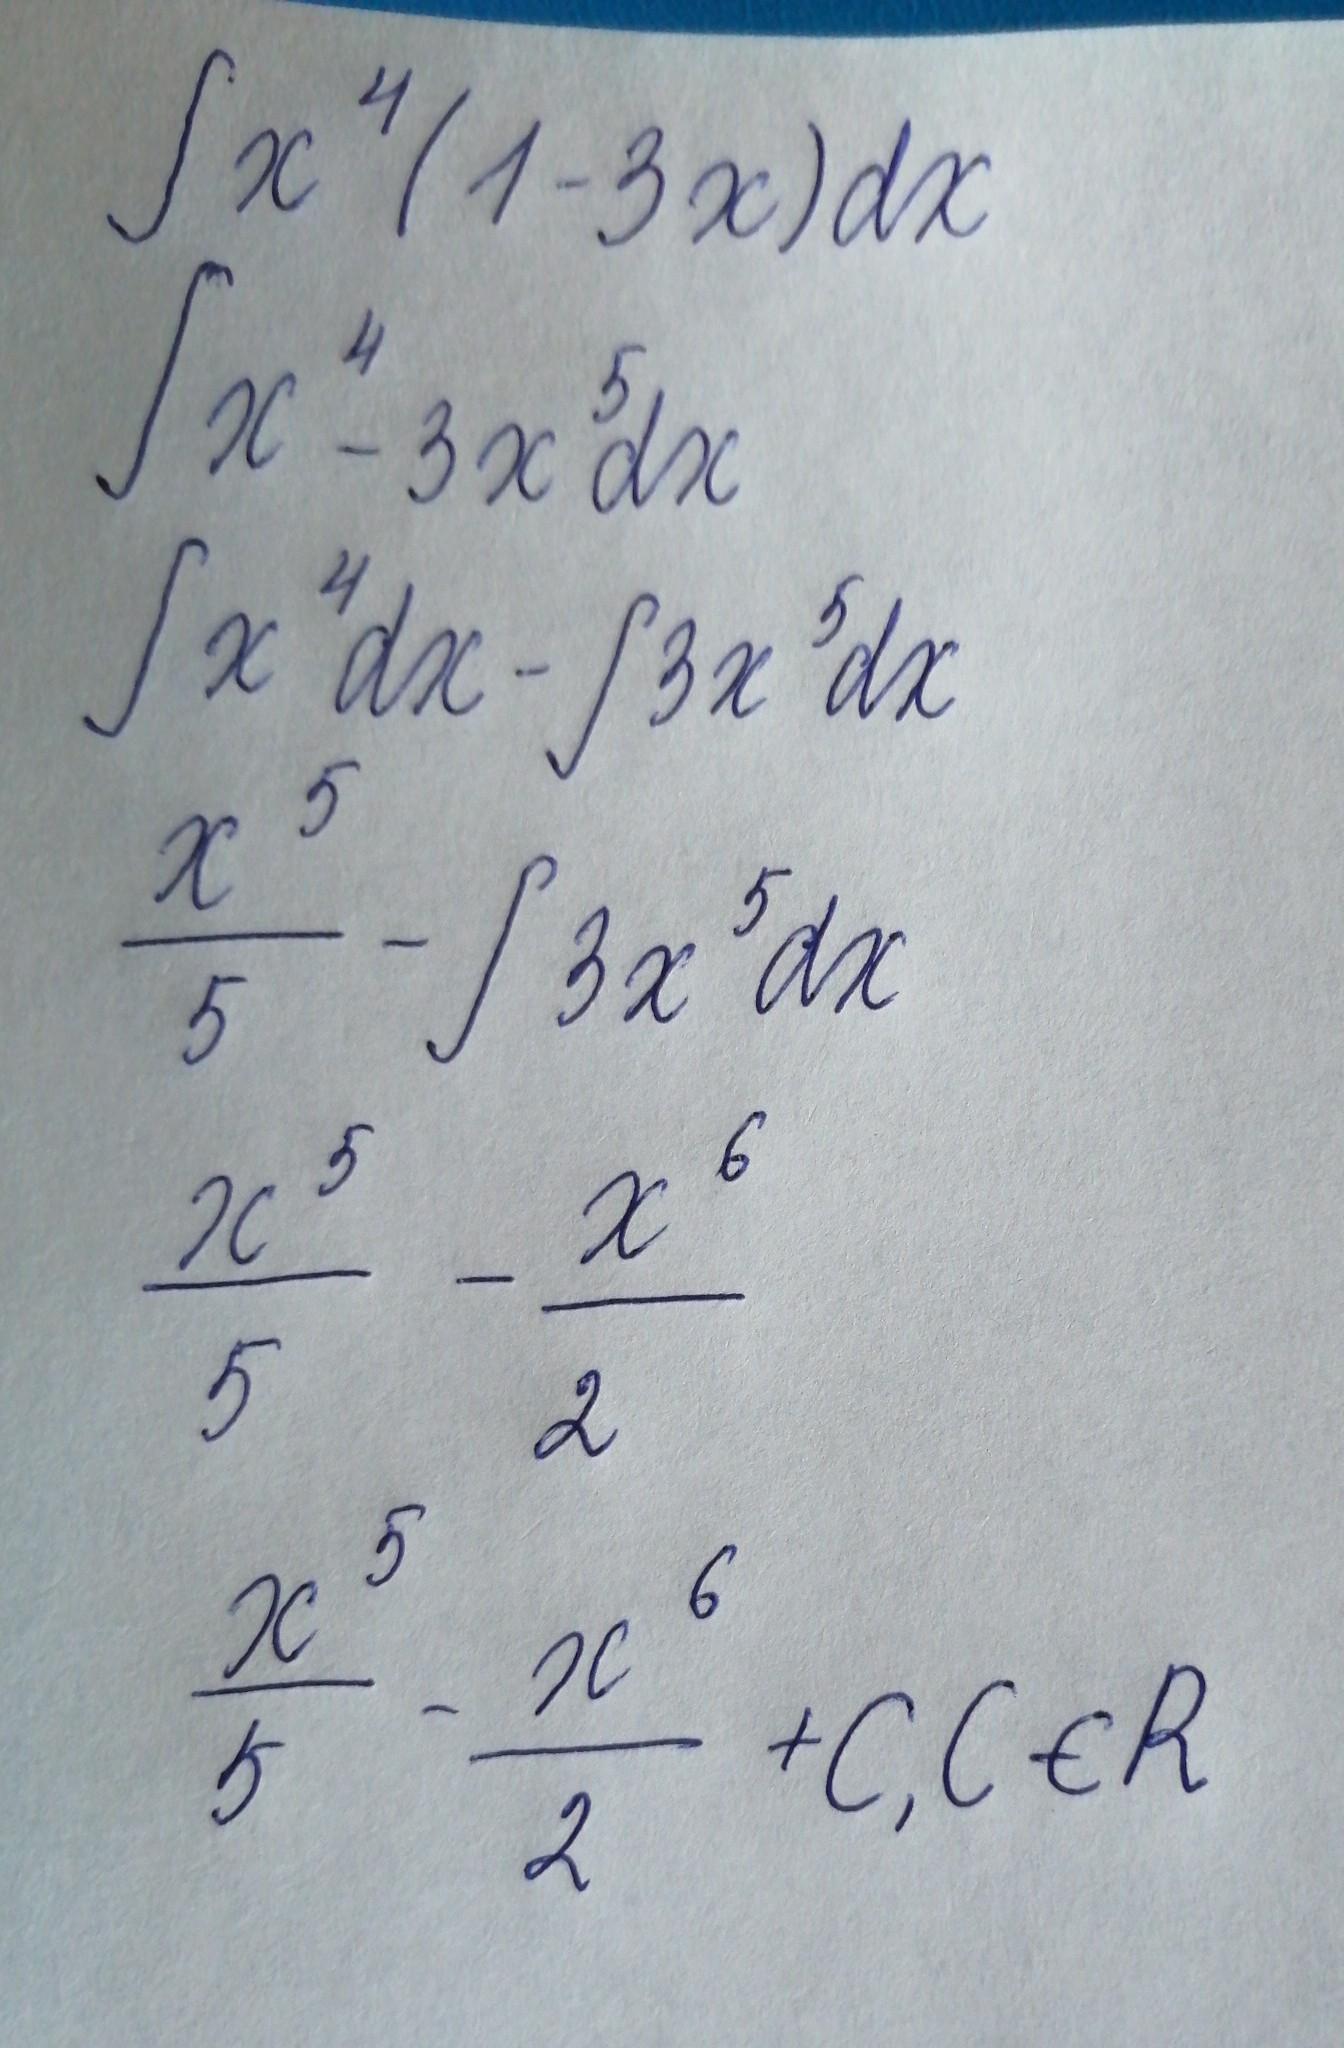 ∫x⁴(1-3x)dx
∫x⁴-3x⁵dx
∫x⁴dx-∫3x⁵dx
x⁵/5 - ∫3x⁵dx
x⁵/5 - x⁶/2
x⁵/5 - x⁶/2 + C, C∈R